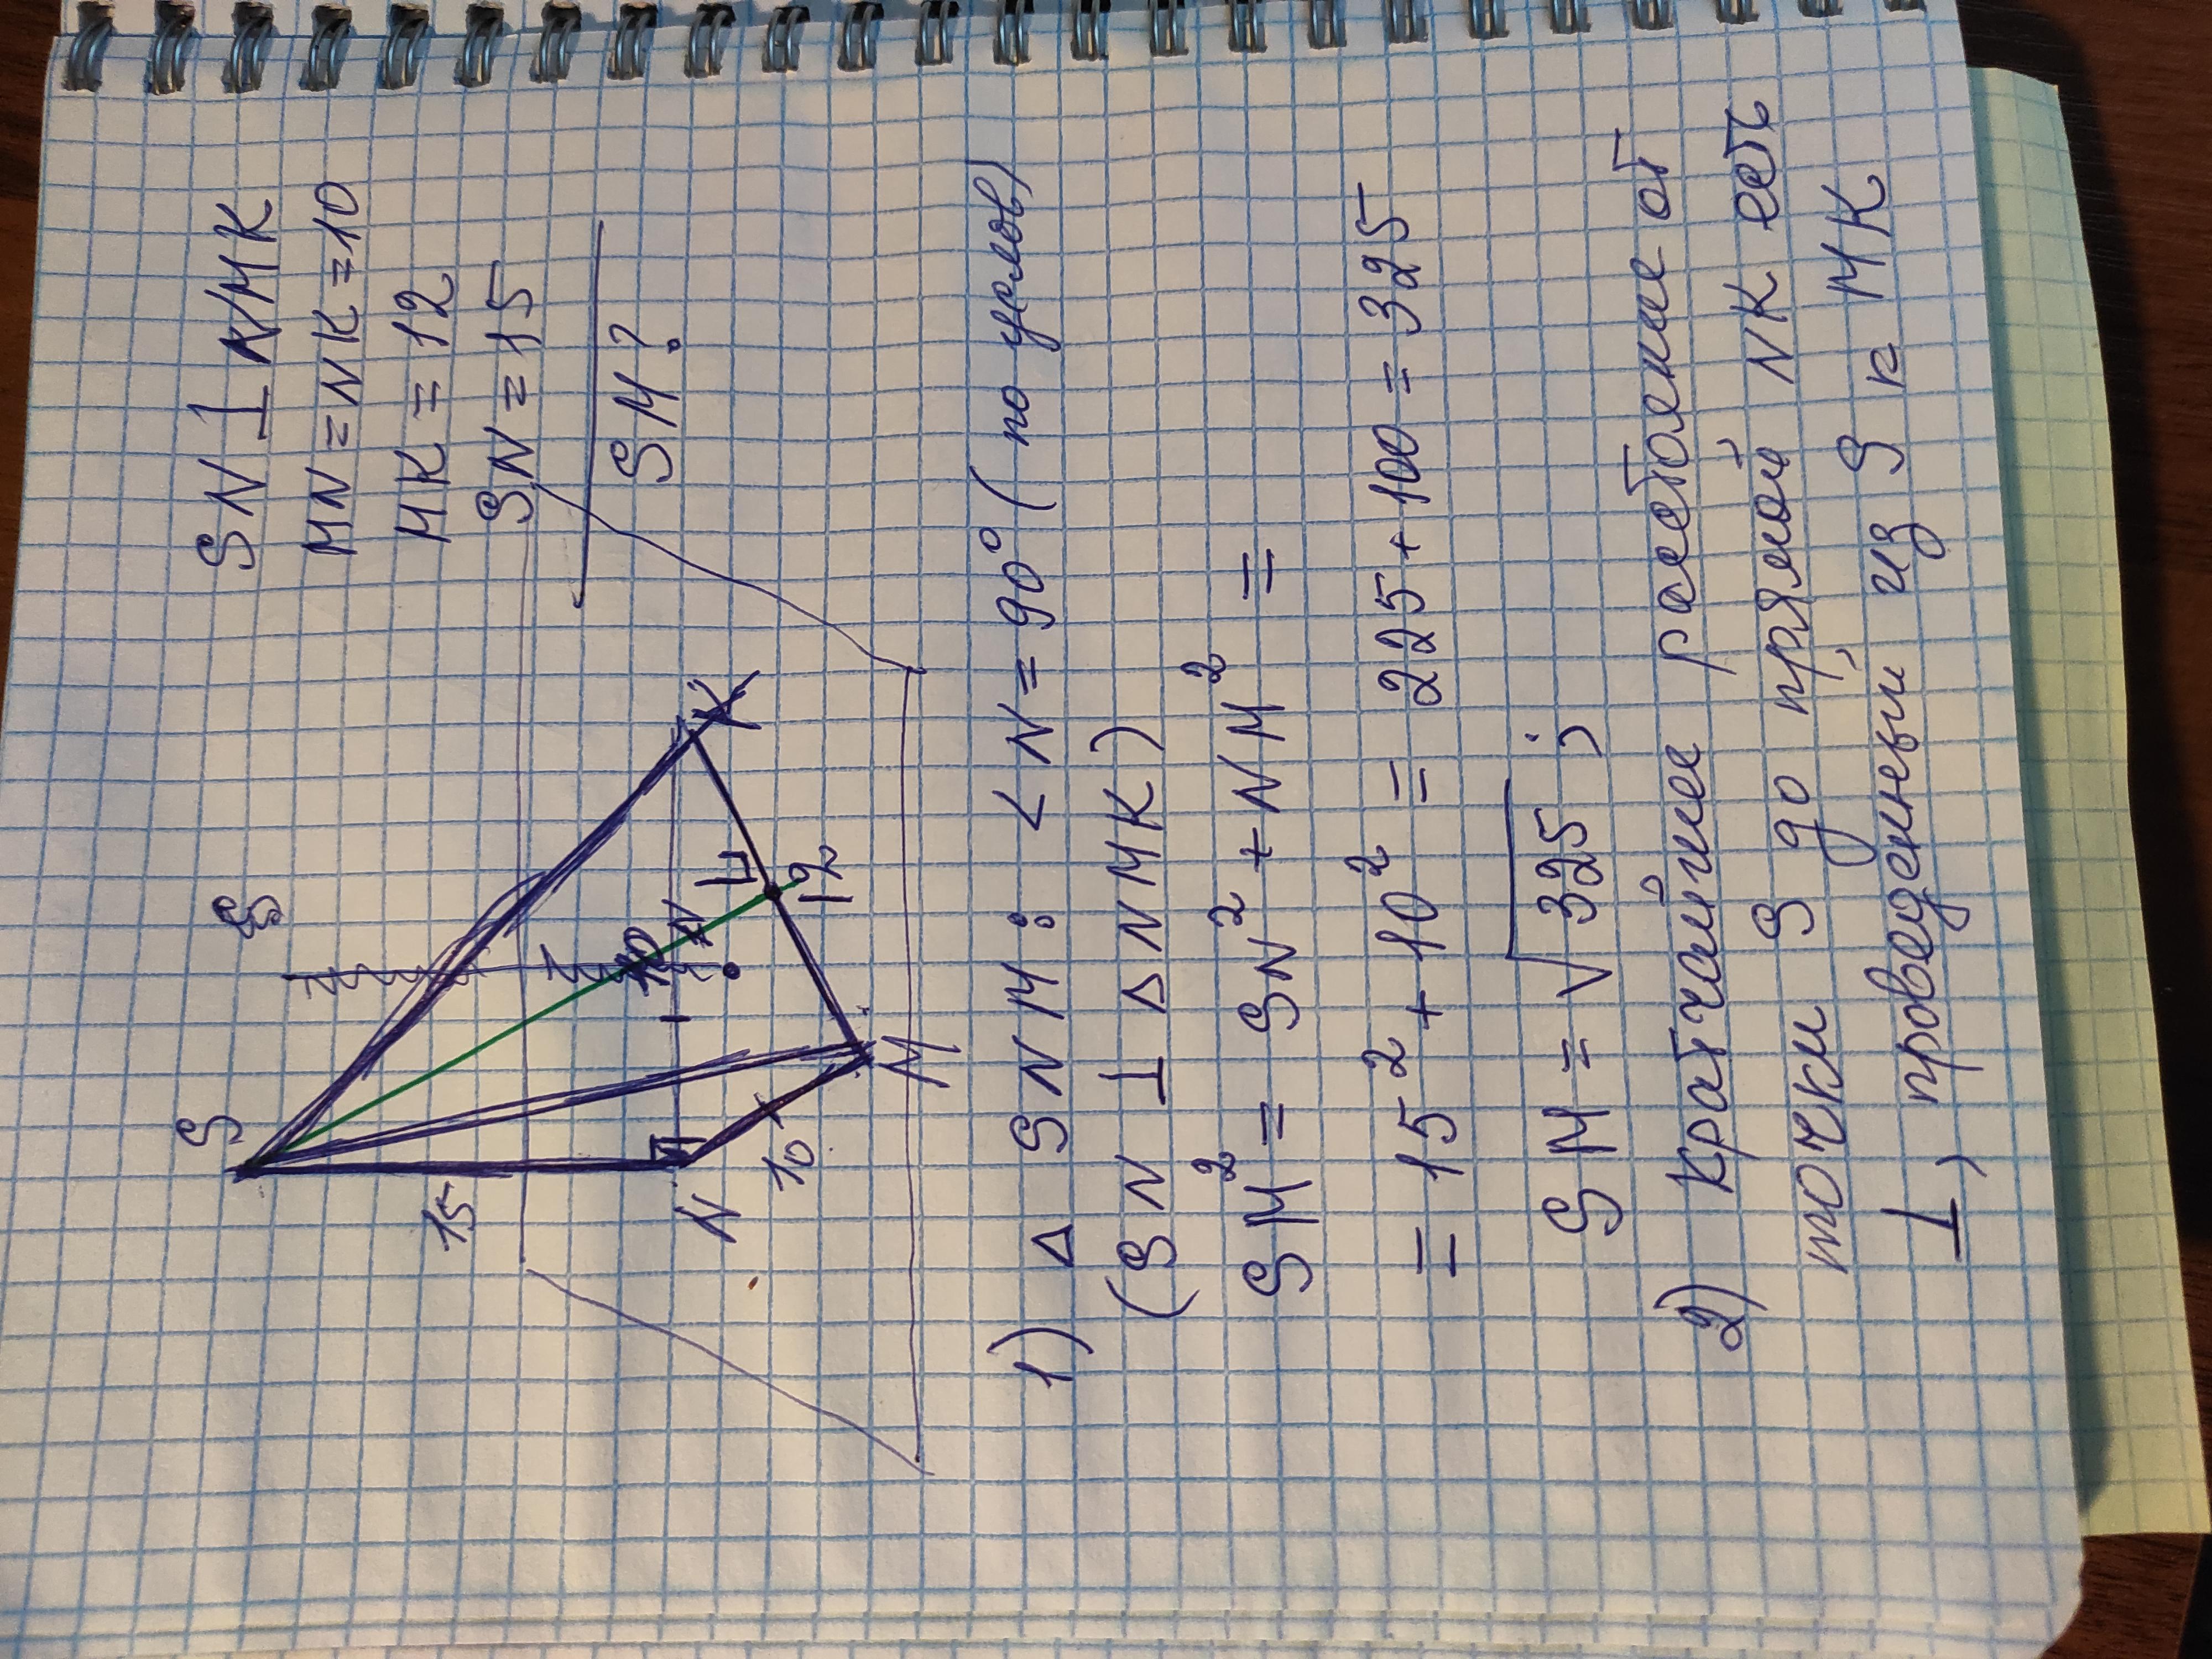 SN ⊥ NMK
MN = NK = 10
MK = 12
SN = 15
SM?
S
S
15
N
10
10
N
M
12
K
1) △ SNM: < N = 90° (по услов)
(SN ⊥ △ NMK)
SM² = SN² + NM² =
= 15² + 10² = 225 + 100 = 325
SM = √325 ;
2) Кратчайшее расстояние от
точки S до прямой NK есть
⊥, проведенный из S к MK